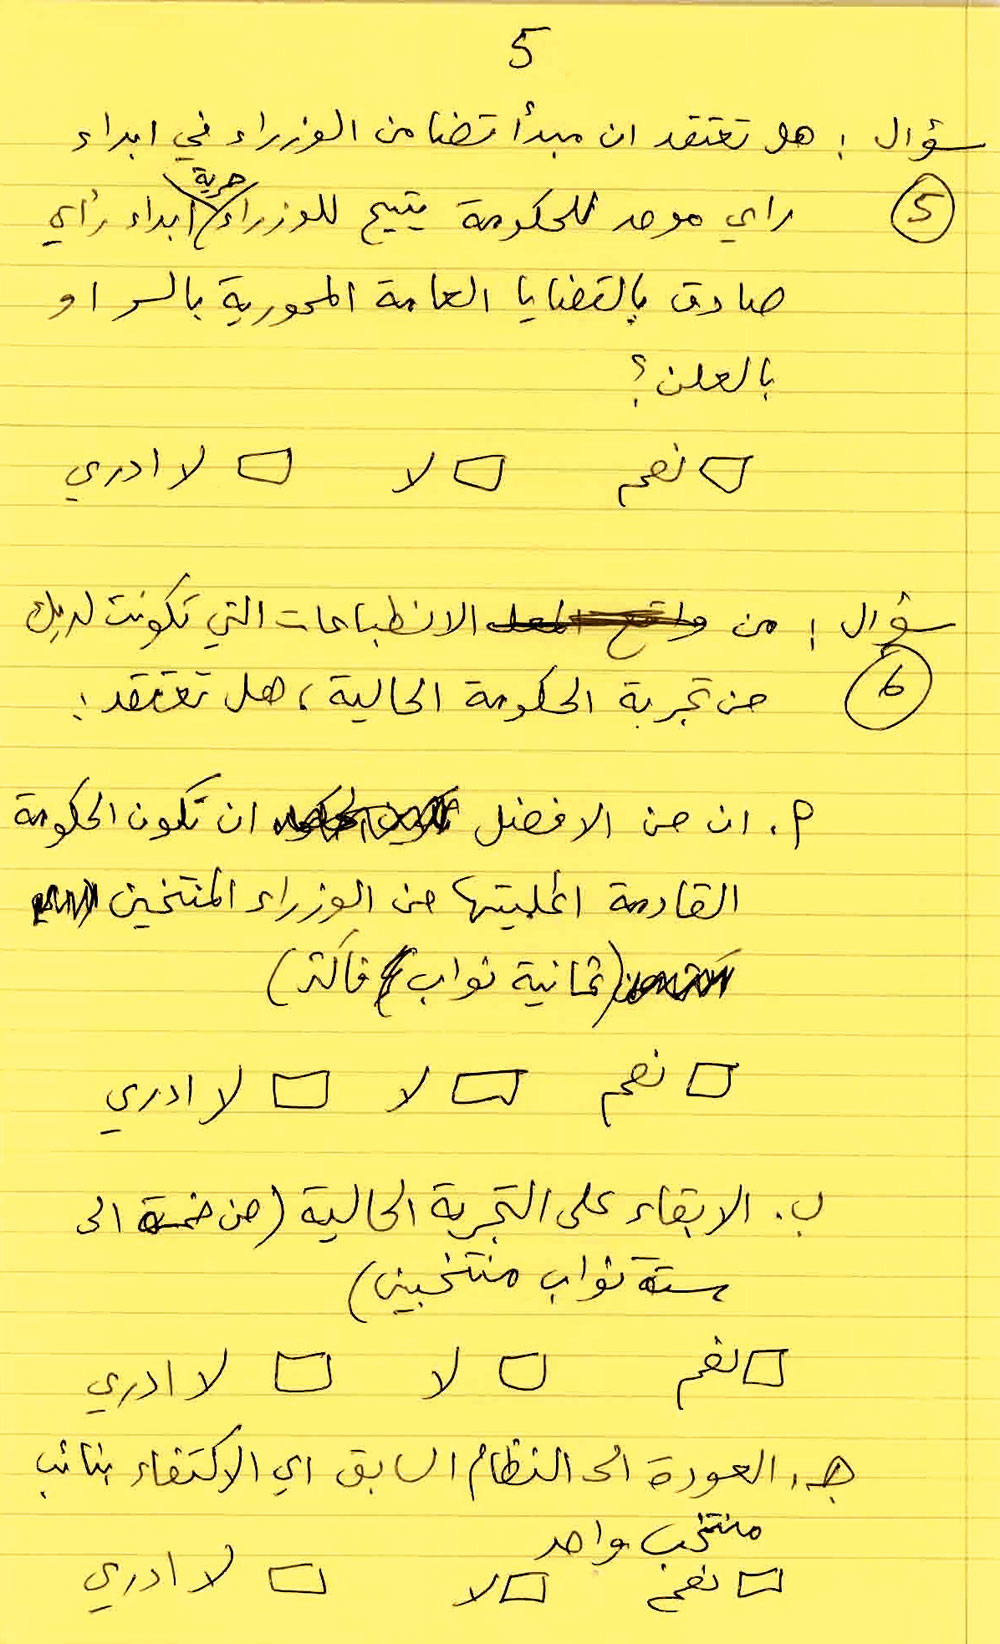 5
سؤال : هل تعتقد ان مبدأ تضامن الوزراء في ابداء
5
راي موحد للحكومة يتيح للوزراء حرية ابداء رأي
صادق بالقضايا العامة المحورية بالسر او
بالعلن ؟
نعم لا لا ادري
سؤال : من الانطباعات التي تكونت لديك
6
من تجربة الحكومة الحالية ، هل تعتقد :
أ. ان من الافضل ان تكون الحكومة
القادمة اغلبيتها من الوزراء المنتخبين
(ثمانية نواب فاكثر)
نعم لا لا ادري
ب. الابقاء على التجربة الحالية (من خمسة الى
ستة نواب منتخبين)
نعم لا لا ادري
جـ. العودة الى النظام السابق اي الاكتفاء بنائب
منتخب واحد
نعم لا لا ادري